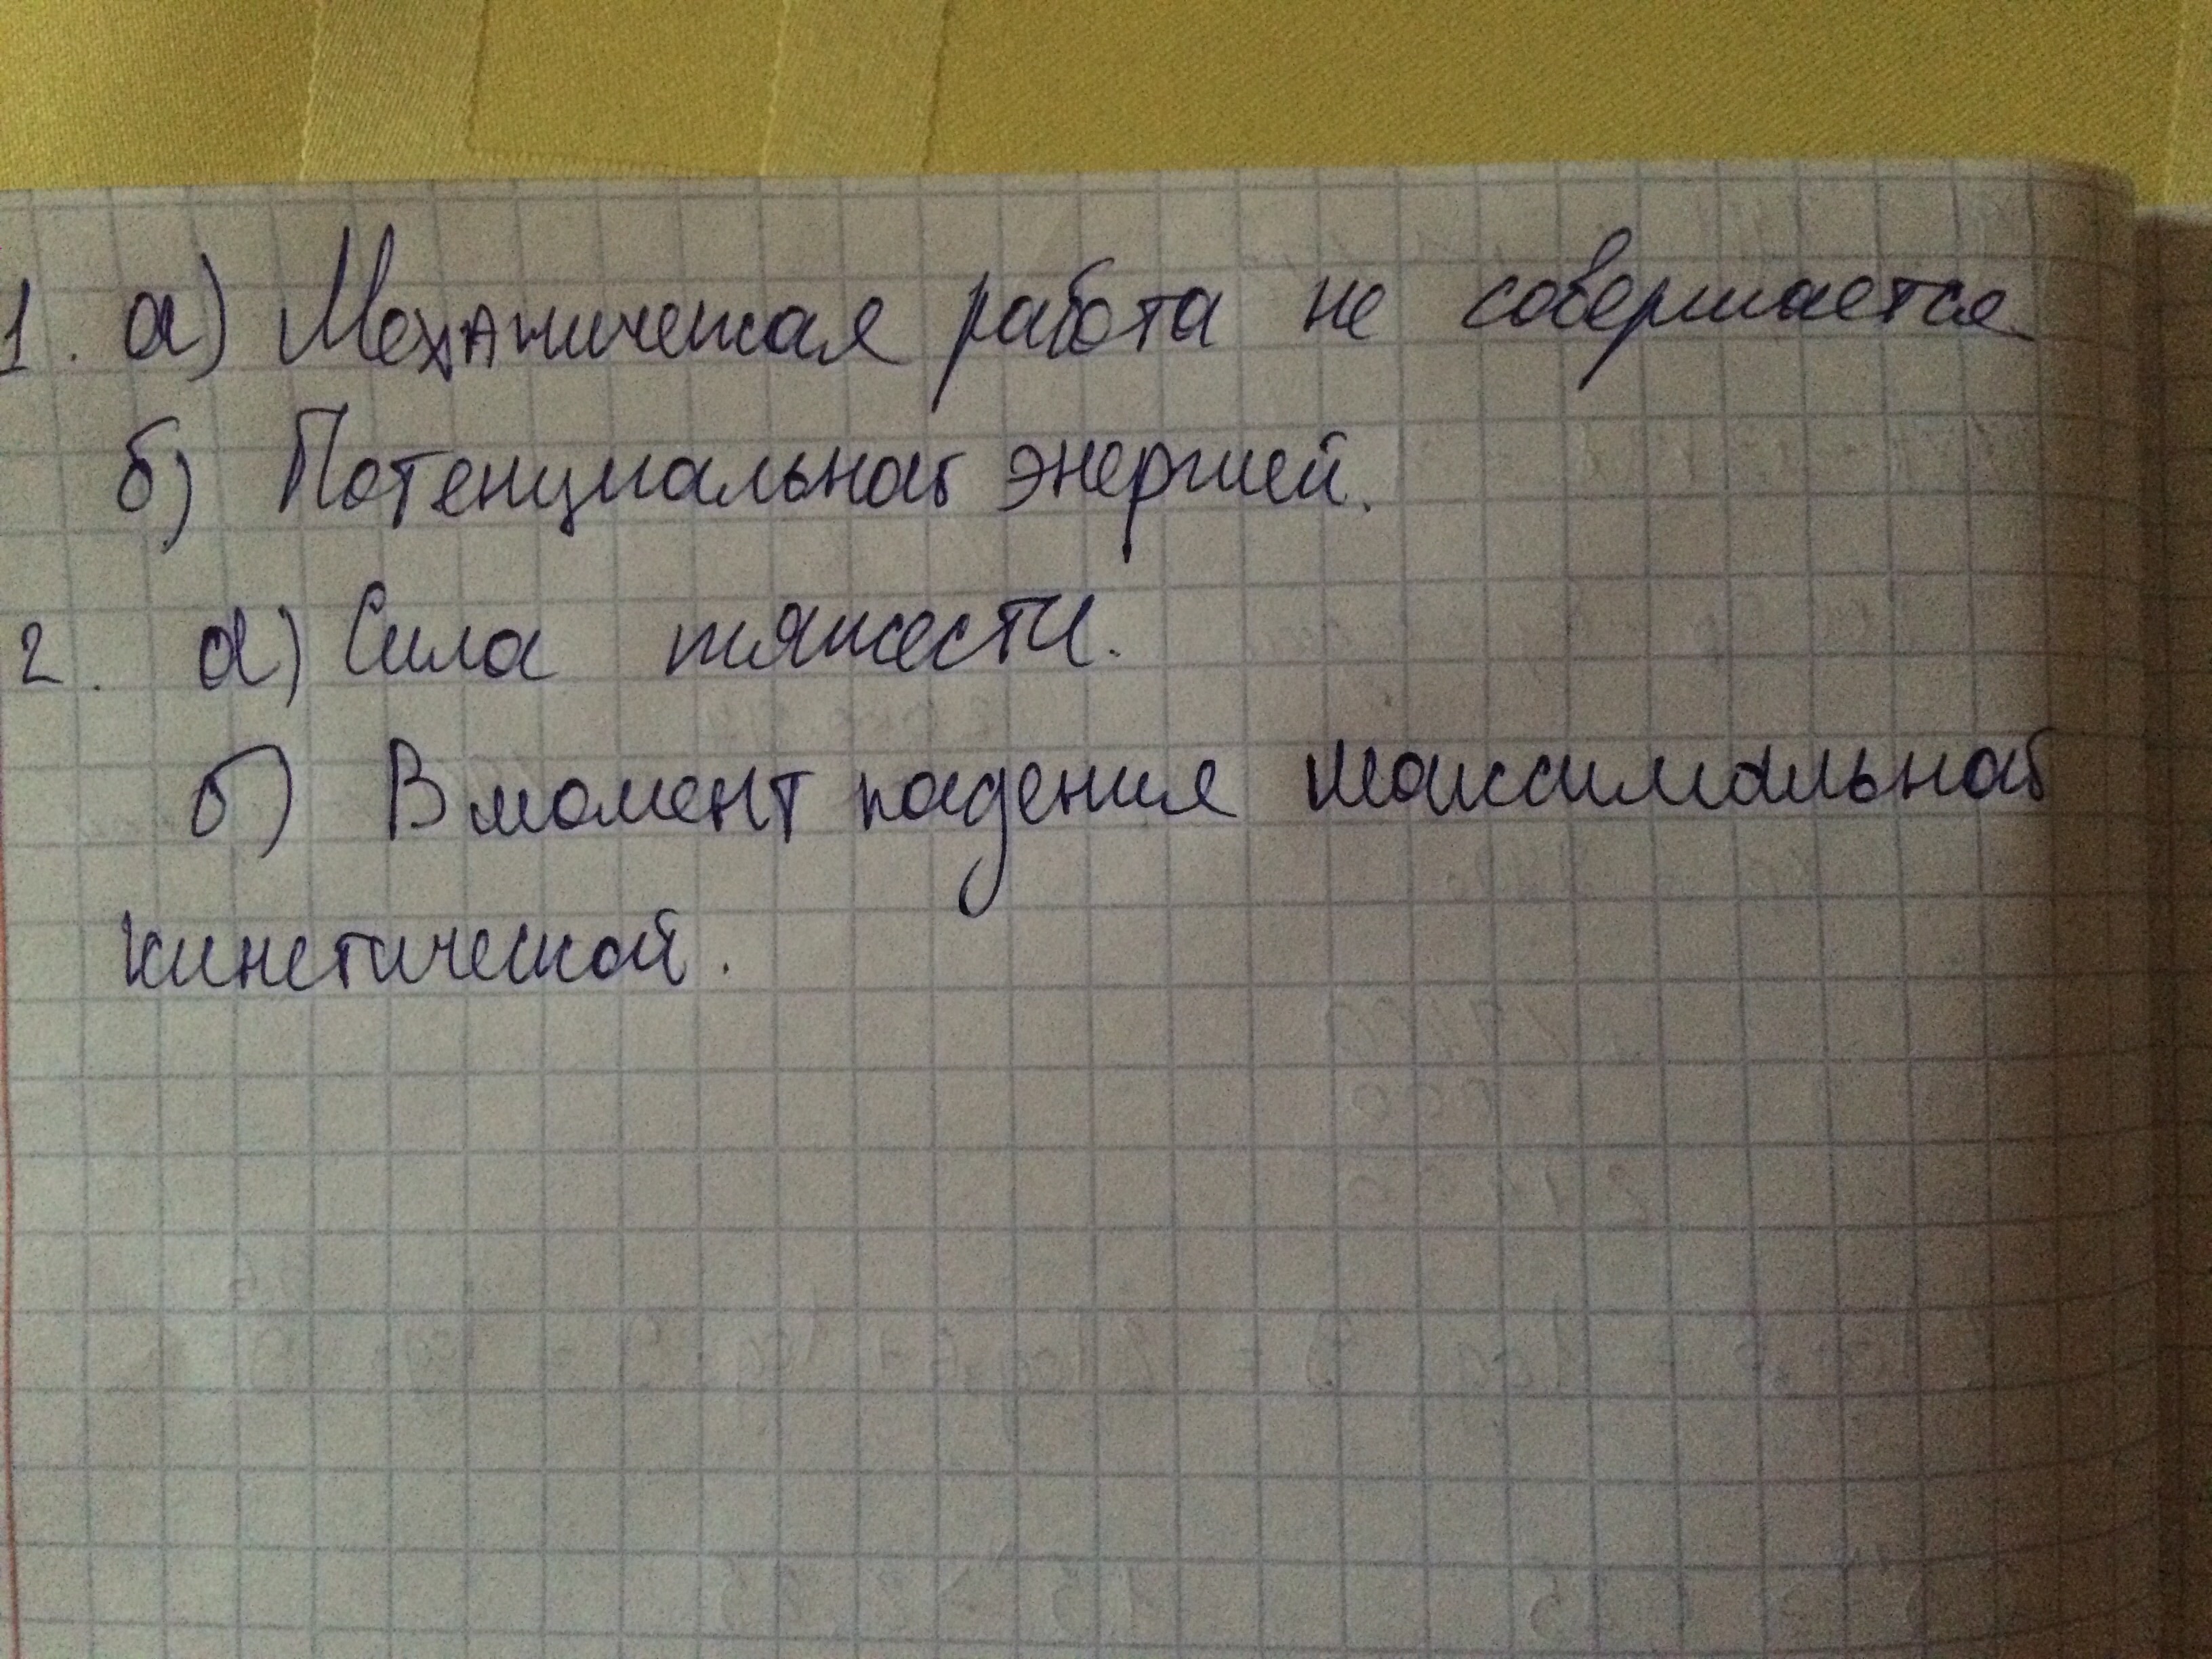 1. а) Механическая работа не совершается
б) Потенциальной энергией.
2. а) Сила тяжести.
б) В момент падения максимальной
кинетической.